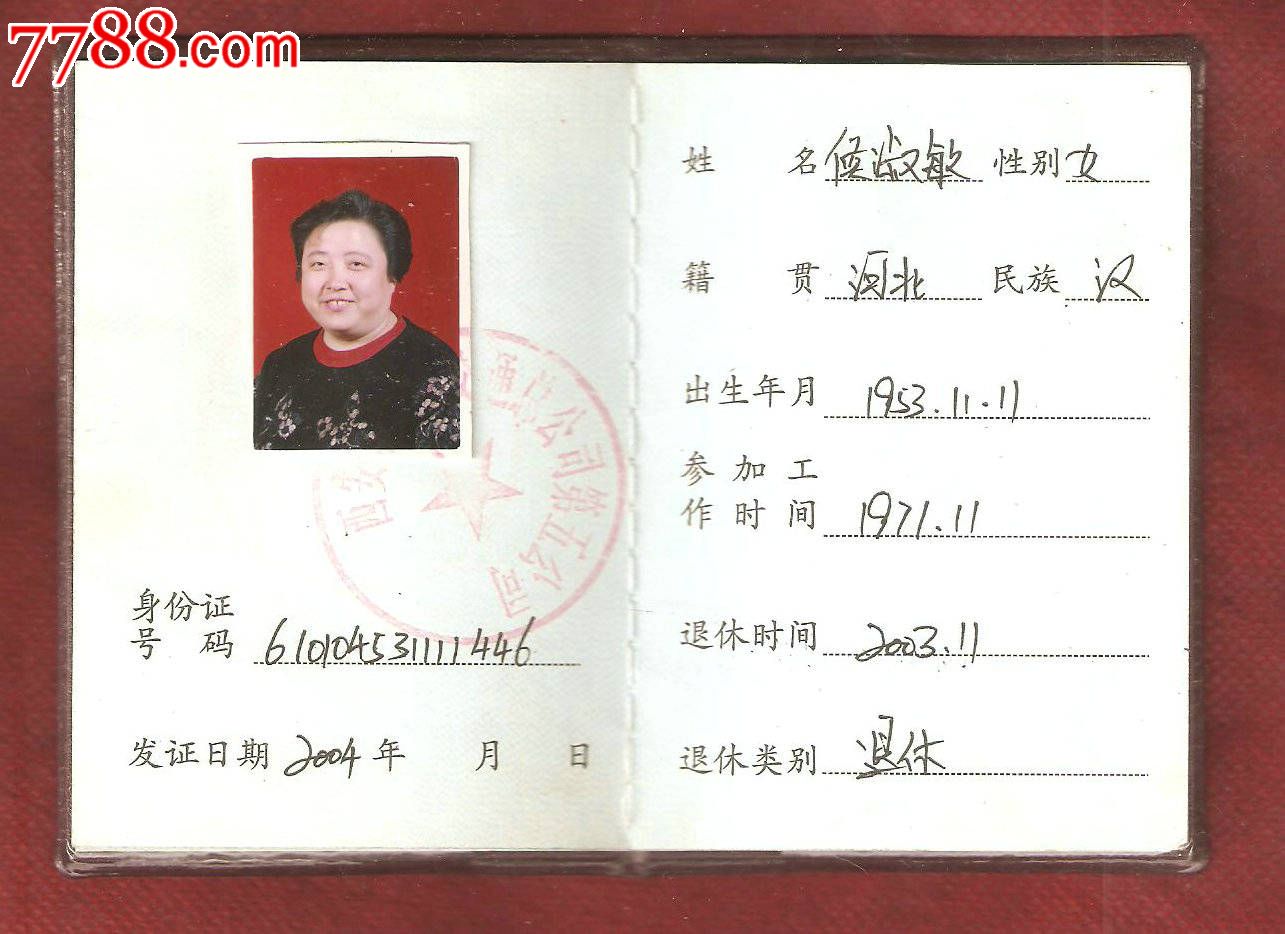 7788.com
姓 名 侯淑敏 性别 女
籍 贯 河北 民族 汉
出生年月 1953.11.11
参加工
作时间 1971.11
退休时间 2003.11
退休类别 退休
身份证
号 码 610104531111446
发证日期 2004 年 月 日
公司第五公司